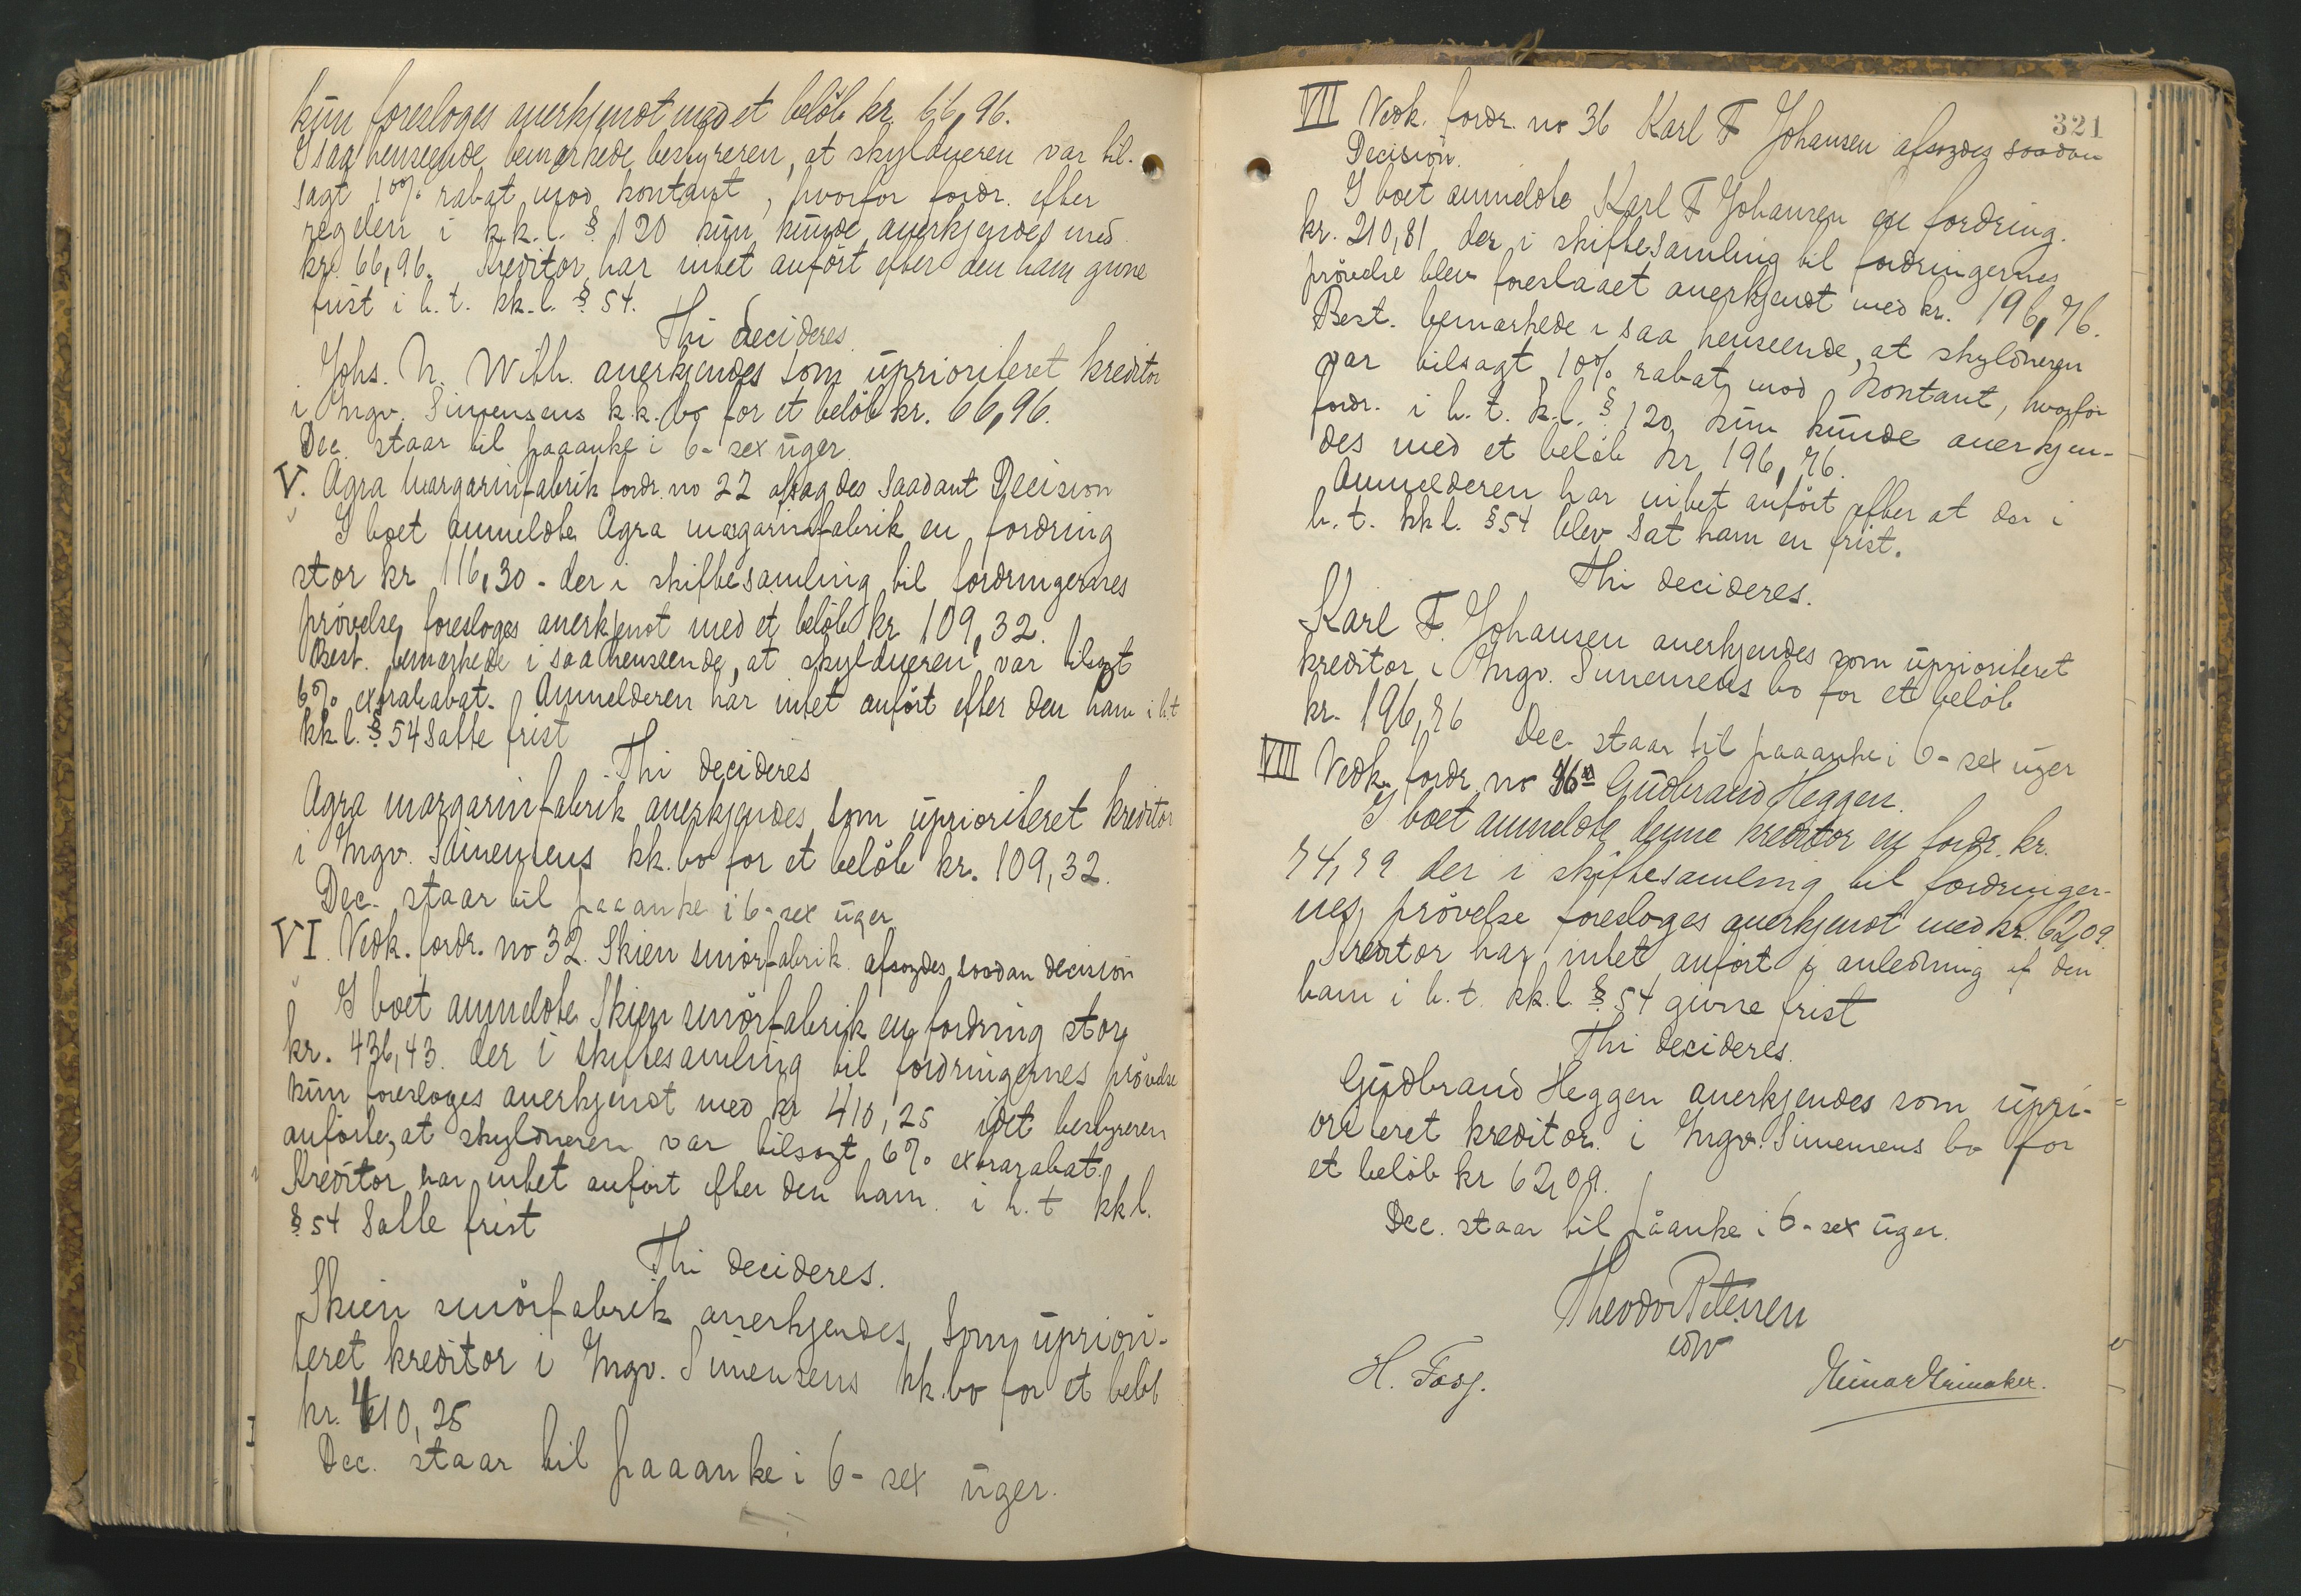 kun foresloges anerkjendt med et beløb kr. 66,96.
I saa henseende bemærkede bestyreren, at skyldneren var til-
sagt 10% rabat mod kontant, hvorfor fordr. efter
reglen i k.k.l. § 120 kun kunde anerkjendes med
kr. 66,96. Kreditor har intet anført efter den ham givne
frist i h.t. kk.l. § 54.
Thi decideres
Johs. N. With. anerkjendes som uprioriteret kreditor
i Ingv. Simensens k.k. bo for et beløb kr. 66,96.
Dec. staar til paaanke i 6- sex uger.
V. Agra margarinfabrik fordr. no 22 afsagdes saadant Decision
I boet anmeldte Agra margarinfabrik en fordring
stor kr 116,30 - der i skiftesamling til fordringernes
prøvelse foresloges anerkjendt med et beløb kr 109,32.
Best. bemærkede i saa henseende, at skyldneren var tilsagt
6% extrarabat. Anmelderen har intet anført efter den ham i h.t
kk l. § 54 satte frist
Thi decideres
Agra margarinfabrik anerkjendes som uprioriteret kreditor
i Ingv. Simensens kk. bo for et beløb kr. 109,32.
Dec. staar til paaanke i 6- sex uger
VI. Vedk. fordr. no 32. Skien smørfabrik afsagdes saadan decision
I boet anmeldte Skien smørfabrik en fordring stor
kr. 436,43. der i skiftesamling til fordringernes prøvelse
kun foresloges anerkjendt med kr 410,25 idet bestyreren
anførte, at skyldneren var tilsagt 6% extrarabat.
Kreditor har intet anført efter den ham i h.t kkl.
§ 54 satte frist
Thi decideres.
Skien smørfabrik anerkjendes som upriori-
teret kreditor i Ingv. Simensens kk. bo for et beløb
kr. 410,25
Dec. staar til paaanke i 6- sex uger.
321
VII Vedk. fordr. no 36 Karl F Johansen afsagdes saadan
Decision.
I boet anmeldte Karl F Johansen en fordring.
kr. 210,81 der i skiftesamling til fordringernes
prøvelse blev foreslaaet anerkjendt med kr. 196,76.
Best. bemærkede i saa henseende, at skyldneren
var tilsagt 10% rabat mod kontant, hvorfor
fordr. i h.t. k.l. § 120 kun kunde anerkjen-
des med et beløb kr 196,76.
Anmelderen har intet anført efter at der i
h.t. kkl. § 54 blev sat ham en frist.
Thi decideres.
Karl F. Johansen anerkjendes som uprioriteret
kreditor i Ingv. Simensens bo for et beløb
kr. 196,76 Dec. staar til paaanke i 6- sex uger
VIII Vedk. fordr. no Gudbrand Heggen.
I boet anmeldte denne kreditor en fordr. kr.
74,79 der i skiftesamling til fordringer-
nes prøvelse foresloges anerkjendt med kr. 62,09.
Kreditor har intet anført i anledning af den
ham i h.t. kk.l. § 54 givne frist
Thi decideres.
Gudbrand Heggen anerkjendes som upri-
oriteret kreditor i Ingv. Simensens bo for
et beløb kr 62,09.
Dec. staar til påanke i 6- sex uger.
Theodor Petersen
H. Fasj.